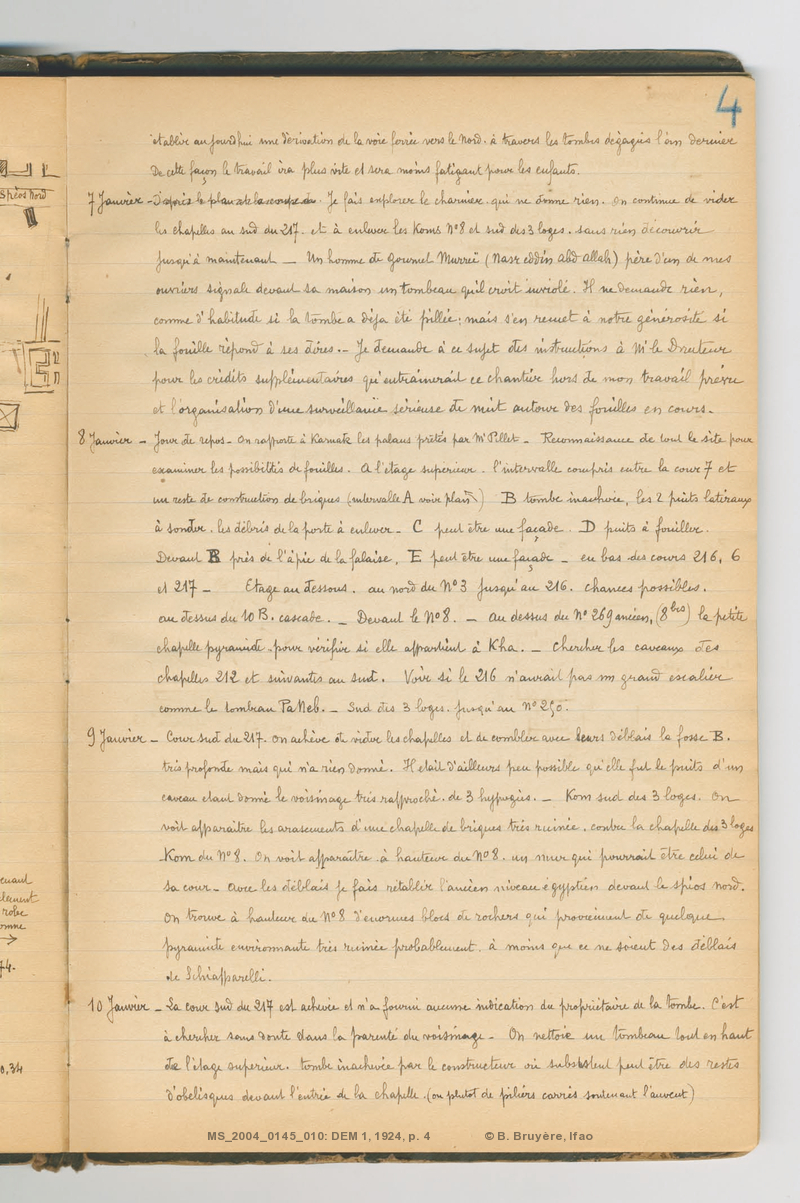 4
établir aujourdhui une dérivation de la voie ferrée vers le Nord. à travers les tombes dégagées l'an dernier
De cette façon le travail ira plus vite et sera moins fatigant pour les enfants.
7 Janvier - D'après le plan de la coupe du. Je fais explorer le charnier qui ne donne rien. On continue de vider
les chapelles au sud du 217. et à enlever les Koms N°8 et sud des 3 loges. sans rien découvrir
Jusqu'à maintenant — Un homme de Gournet Murreï (Nasr eddin abd allah) père d'un de mes
ouvriers signale devant sa maison un tombeau qu'il croit inviolé. Il ne demande rien,
comme d'habitude si la tombe a déja été pillée; mais s'en remet à notre générosité si
la fouille répond à ses dires. - Je demande à ce sujet des instructions à Mr le Directeur
pour les crédits supplémentaires qu'entrainerait ce chantier hors de mon travail prévu
et l'organisation d'une surveillance sérieuse de nuit autour des fouilles en cours.
8 Janvier - Jour de repos - On rapporte à Karnak les palans prêtés par Mr Pillet - Reconnaissance de tout le site pour
examiner les possibilités de fouilles. A l'étage supérieur. l'intervalle compris entre la cour 7 et
un reste de construction de briques (intervalle A voir plan) B tombe inachevée, les 2 puits latéraux
à sonder. les débris de la porte à enlever - C peut être une façade. D puits à fouiller.
Devant B près de l'à pic de la falaise, E peut être une façade - en bas des cours 216, 6
et 217 - Etage au dessous. au nord du N°3 Jusqu'au 216. chances possibles.
au dessus du 10 B. cascade. - Devant le N°8. - au dessus du N° 269 ancien, (8 bis) la petite
chapelle pyramide. pour vérifier si elle appartient à Kha. - Chercher les caveaux des
chapelles 212 et suivantes au sud. Voir si le 216 n'aurait pas un grand escalier
comme le tombeau PaNeb. - Sud des 3 loges. Jusqu'au N° 290.
9 Janvier - Cour sud du 217. On achève de vider les chapelles et de combler avec leurs déblais la fosse B.
très profonde mais qui n'a rien donné. Il etait d'ailleurs peu possible qu'elle fut le puits d'un
caveau etant donné le voisinage très rapproché de 3 hypogées. - Kom sud des 3 loges. On
voit apparaître les arasements d'une chapelle de briques très ruinée. contre la chapelle des 3 loges
Kom du N°8. On voit apparaître à hauteur du N°8. un mur qui pourrait être celui de
sa cour - avec les déblais je fais rétablir l'ancien niveau égyptien devant le spéos nord.
On trouve à hauteur du N°8 d'enormes blocs de rochers qui proviennent de quelque
pyramide environnante très ruinée probablement. à moins que ce ne soient des déblais
de Schiapparelli.
10 Janvier - La cour sud du 217 est achevée et n'a fourni aucune indication du propriétaire de la tombe. C'est
à chercher sans doute dans la parenté du voisinage - On nettoie un tombeau tout en haut
de l'étage supérieur. tombe inachevée par le constructeur où subsistent peut être des restes
d'obelisques devant l'entrée de la chapelle. (ou plutot de piliers carrés soutenant l'auvent)
Spéos Nord
0,34
MS_2004_0145_010: DEM 1, 1924, p. 4 © B. Bruyère, Ifao